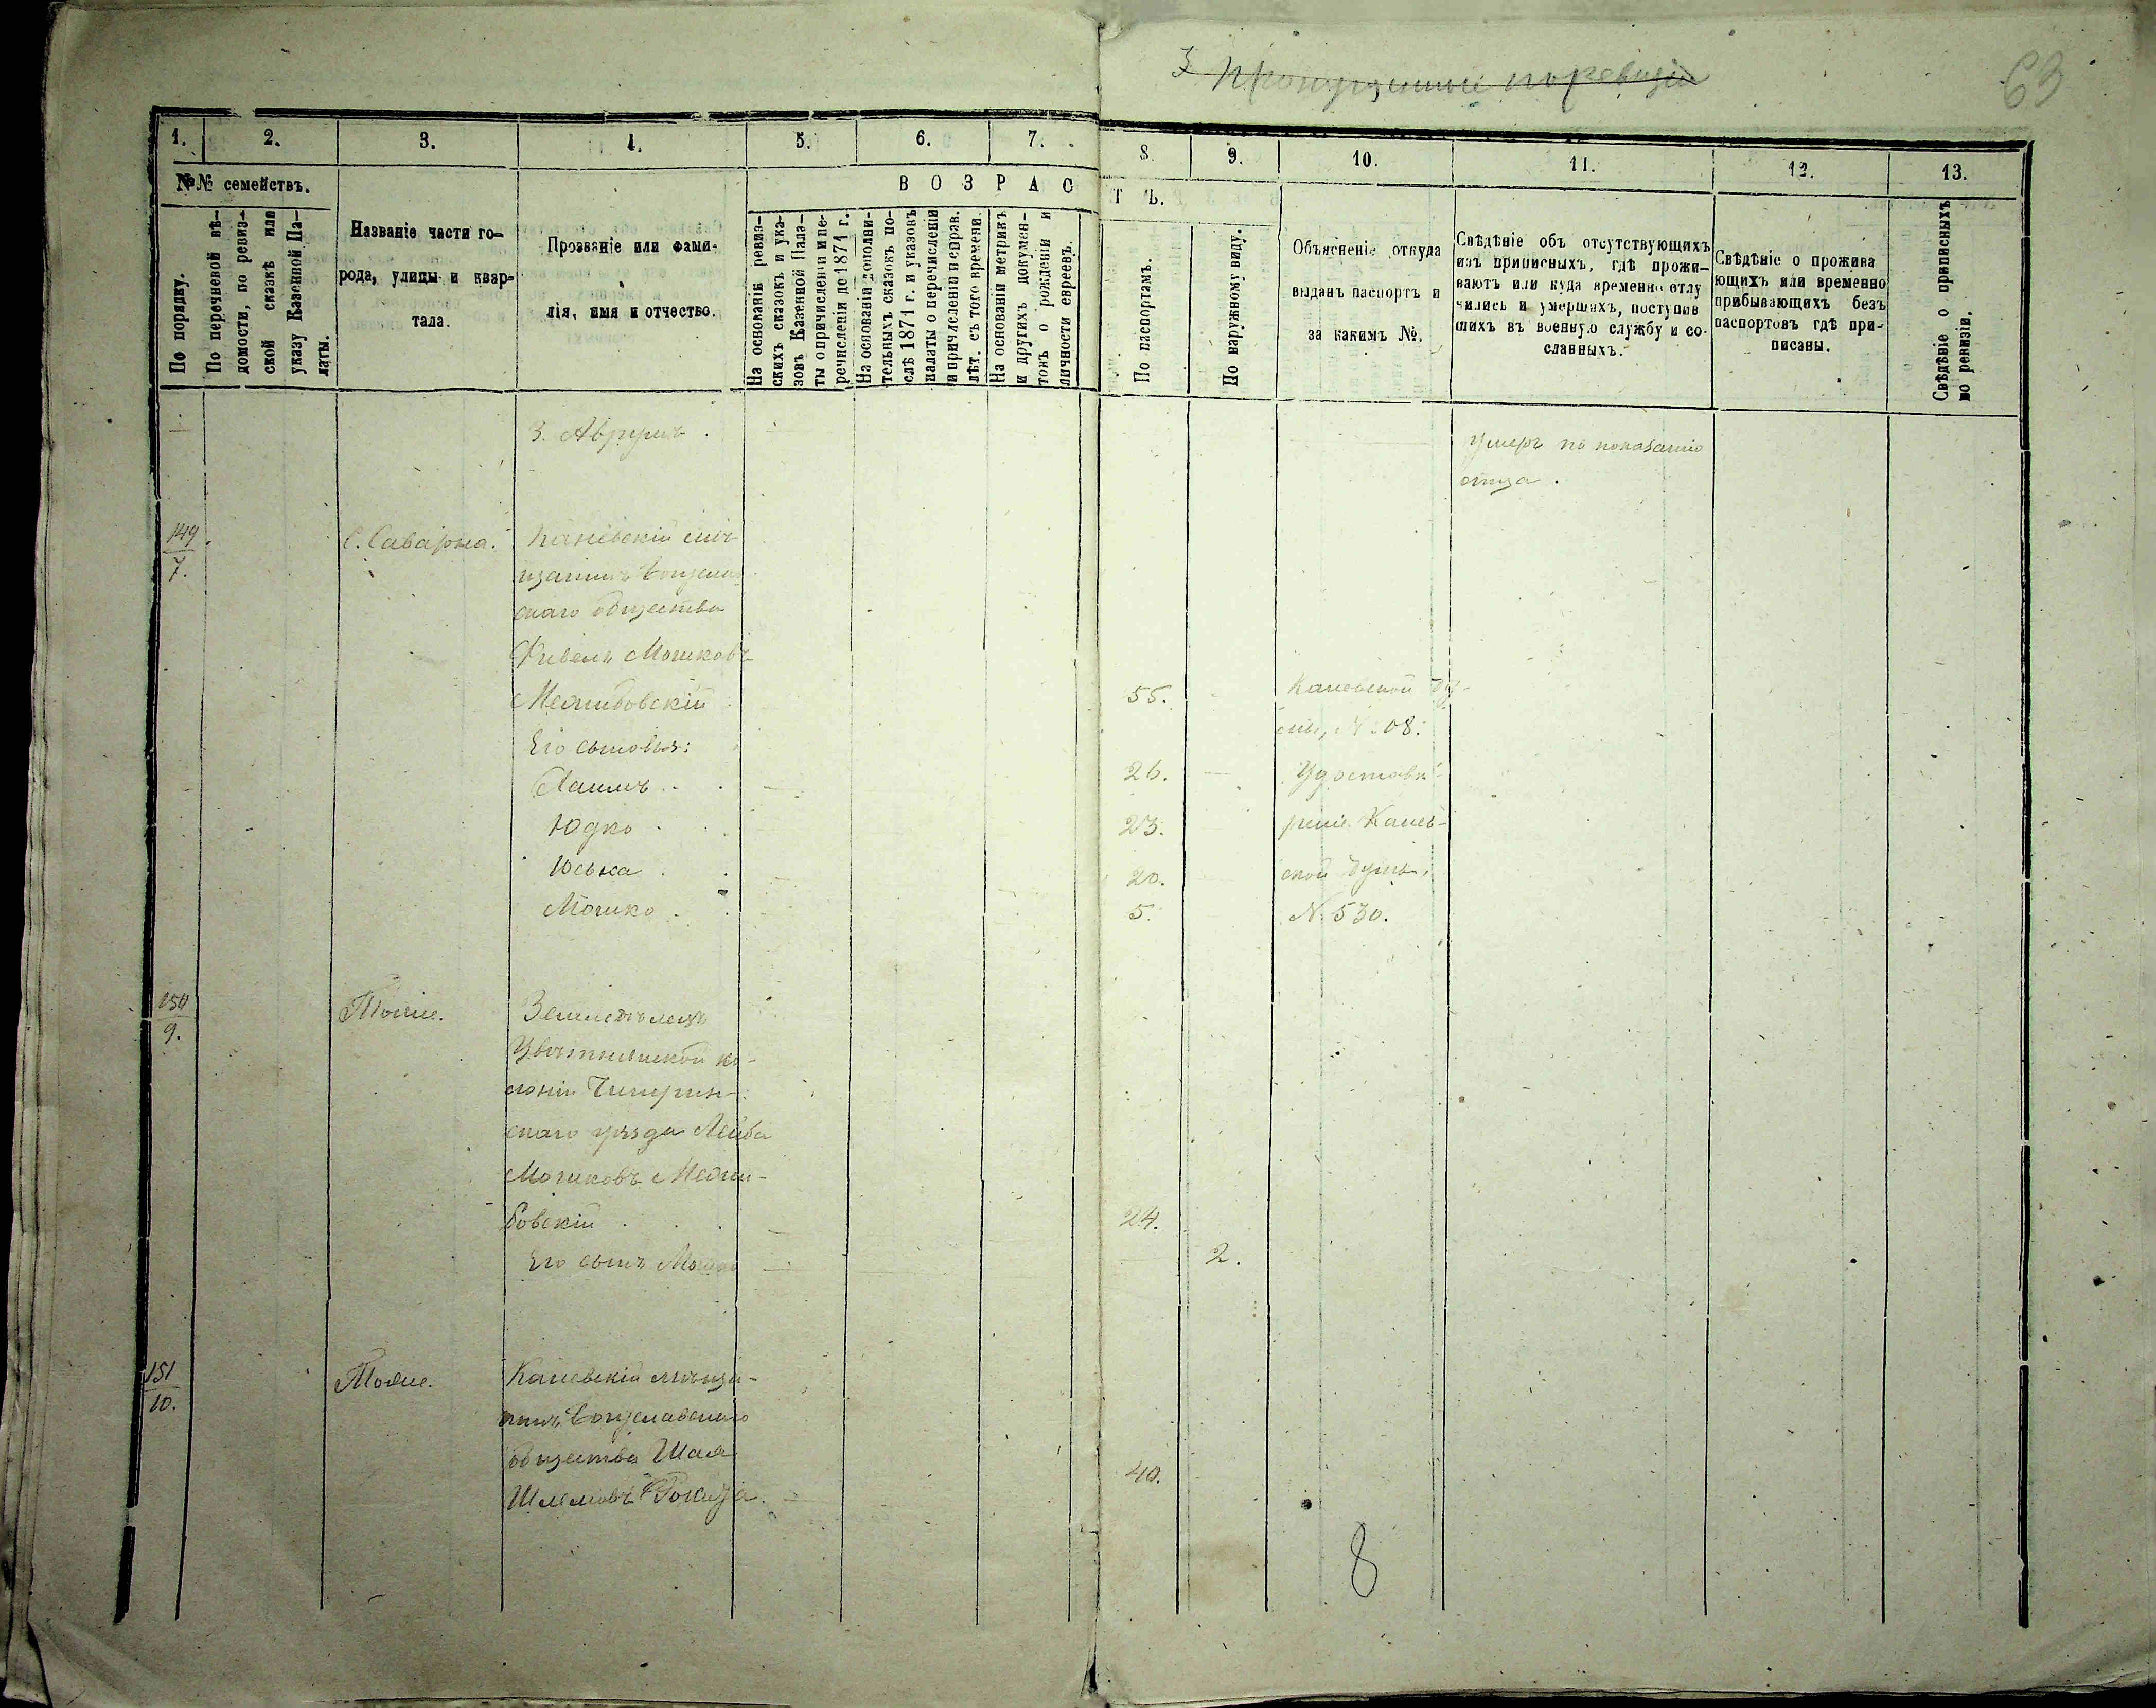 З пропущенные по ревизіи
63
1. 2. 3. 4. 5. 6. 7. 8. 9. 10. 11. 12. 13.
№№ семействъ.
По порядку.
По перечневой вѣ-
домости, по ревиз-
ской сказкѣ или
указу Казенной Па-
латы.
Названіе части го-
рода, улицы и квар-
тала.
Прозваніе или фами-
лія, имя и отчество.
ВОЗРАСТЪ.
На основаніи ревиз-
скихъ сказокъ и ука-
зовъ Казенной Пала-
ты о причисленіи и пе-
речисленіи до 1871 г.
На основаніи дополни-
тельныхъ сказокъ по-
слѣ 1871 г. и указовъ
палаты о перечисленіи
и причисленіи неправ.
лѣт. съ того времени.
На основаніи метрикъ
и другихъ докумен-
товъ о рожденіи и
личности евреевъ.
По паспортамъ.
По наружному виду.
Объясненіе откуда
выданъ паспортъ и
за какимъ №.
Свѣдѣніе объ отсутствующихъ
изъ приписныхъ, гдѣ прожи-
ваютъ или куда временно отлу
чились и умершихъ, поступив
шихъ въ военную службу и со-
сланныхъ.
Свѣдѣніе о прожива
ющихъ или временно
прибывающихъ безъ
паспортовъ гдѣ при-
писаны.
Свѣдѣніе о приписныхъ
по ревизіи.
3. Аврумъ.
умеръ по показанію
отца.
149
7.
С. Саварка.
Каневскій мѣ-
щанинъ
скаго общества
Фивель Мошковъ
Меджибовскій
55.
Каневской Ду-
мы, №
Его сыновья:
Хаимъ
26.
Удостовѣ-
Юдко
23.
реніе Канев-
Юська
20.
ской Думы,
Мошко
5.
№ 530.
150
9.
Тоже.
Земледѣлецъ
ко-
лоніи Чигирин-
скаго уѣзда Лейба
Мошковъ Меджи-
бовскій
24.
Его сынъ Мошко
2.
151
10.
Тоже.
Каневскій мѣща-
нинъ Богуславскаго
общества Шая
Шлемовъ Рокита.
40.
8